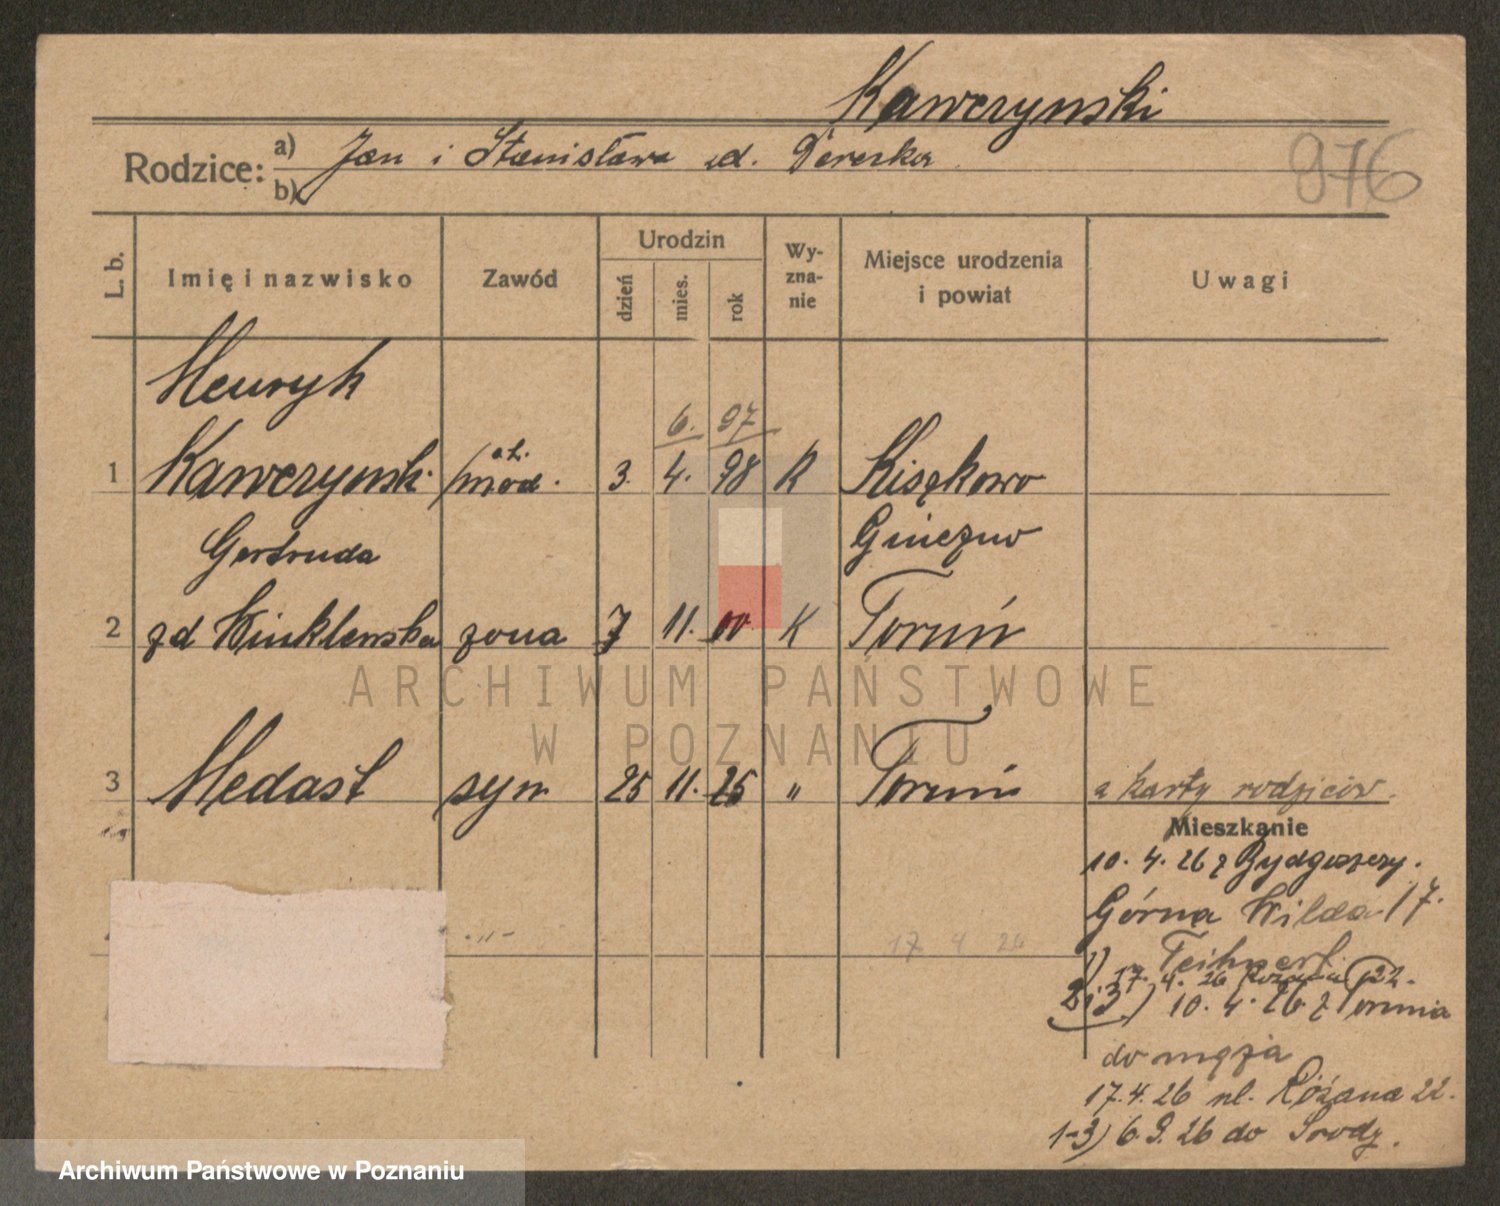 Kawczynski
976
Rodzice:
a) Jan i Stanisława zd. Dereska
b)
L. b.
Imię i nazwisko
Zawód
Urodzin
dzień
mies.
rok
Wy-
zna-
nie
Miejsce urodzenia
i powiat
Uwagi
Henryk
6. 97
1 Kawczynski mod. 3. 4. 98 K Kiszkowo
Gertruda Gniezno
2 zd Winklerska żona 7 11. 00. K Toruń
3 Medast syn 25 11. 25 " Toruń z karty rodziców.
Mieszkanie
10. 4. 26 z Bydgoszczy.
Górna Wilda 17.
17 4 26
1) 17. 4. 26 Różana 22.
2i3) 10. 4. 26 z Torunia
do męża
17. 4. 26 ul. Różana 22.
1-3) 6. 9. 26 do Środy.
ARCHIWUM PAŃSTWOWE
W POZNANIU
Archiwum Państwowe w Poznaniu